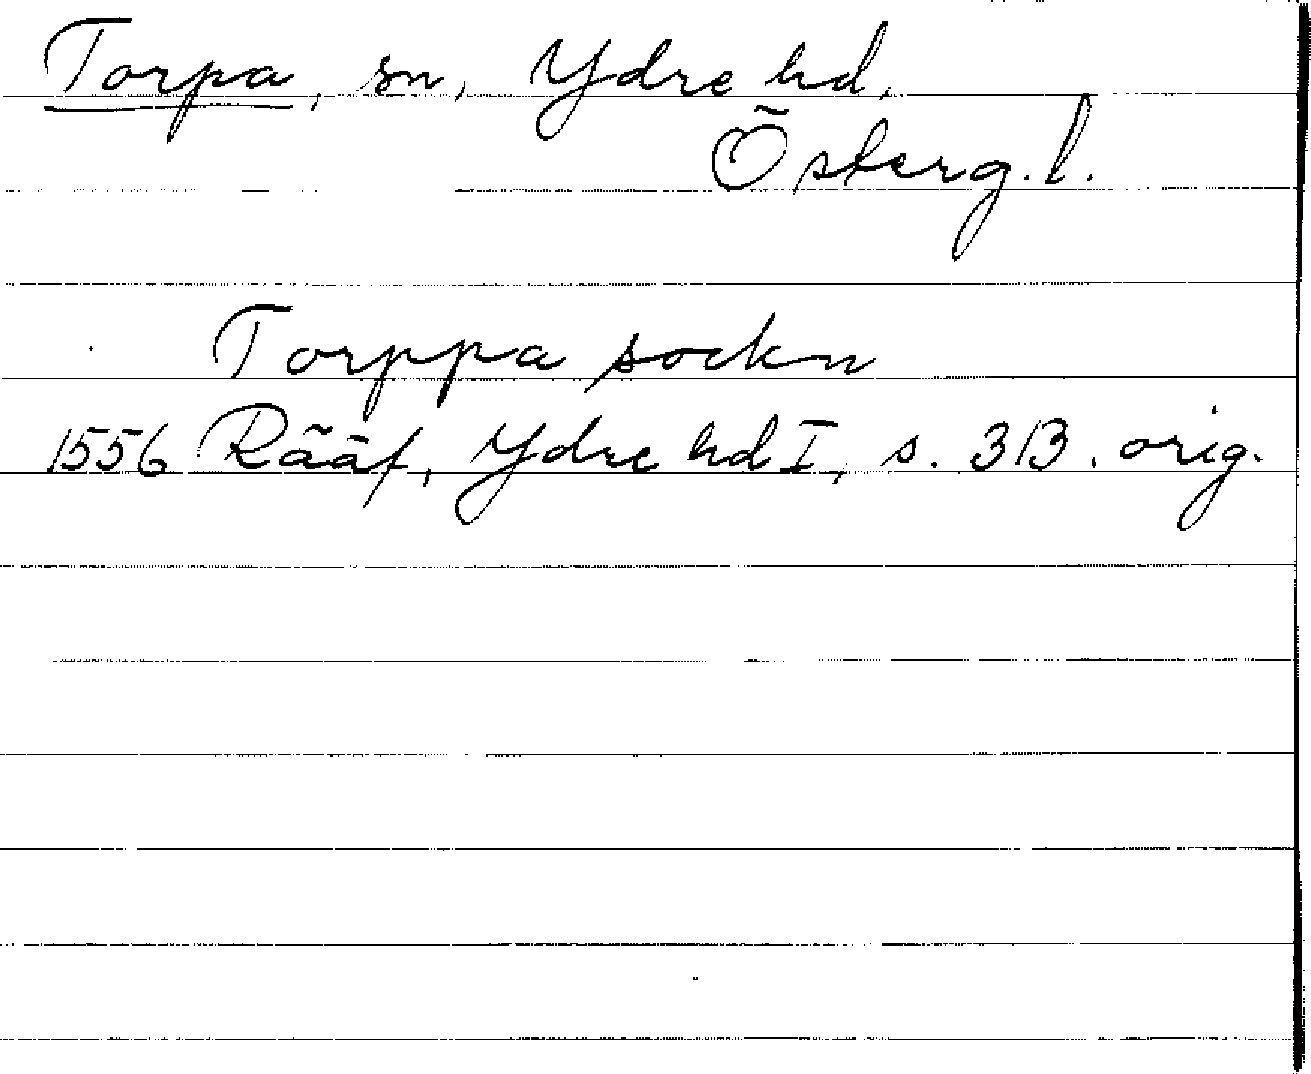 Torpa, sn, Ydre hd,
Österg. l.
Torppa sockn
1556 Rääf, Ydre hd I, s. 313. orig.